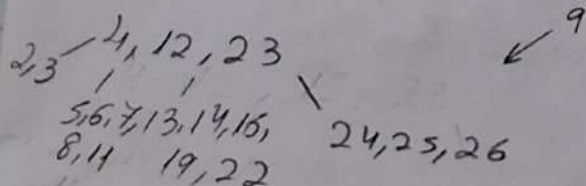 9
4, 12, 23
2,3
5,6,7, 13,14,16,
8,11 19,22
24,25,26